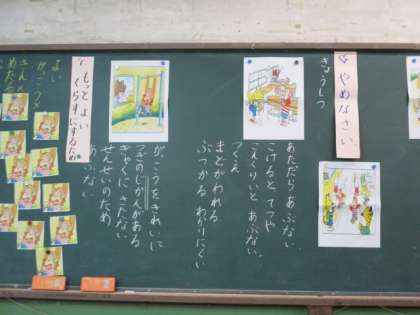 やめなさい。
きょうしつ
あたったら あぶない
こけると
あぶない。
つくえ
まどがわれる
ぶつかる わかりにくい
がっこうをきれいに
つぎのじかんがある
きゃくに きたない
せんせいのため
あぶない
もっとよい
くらすにするため
よい